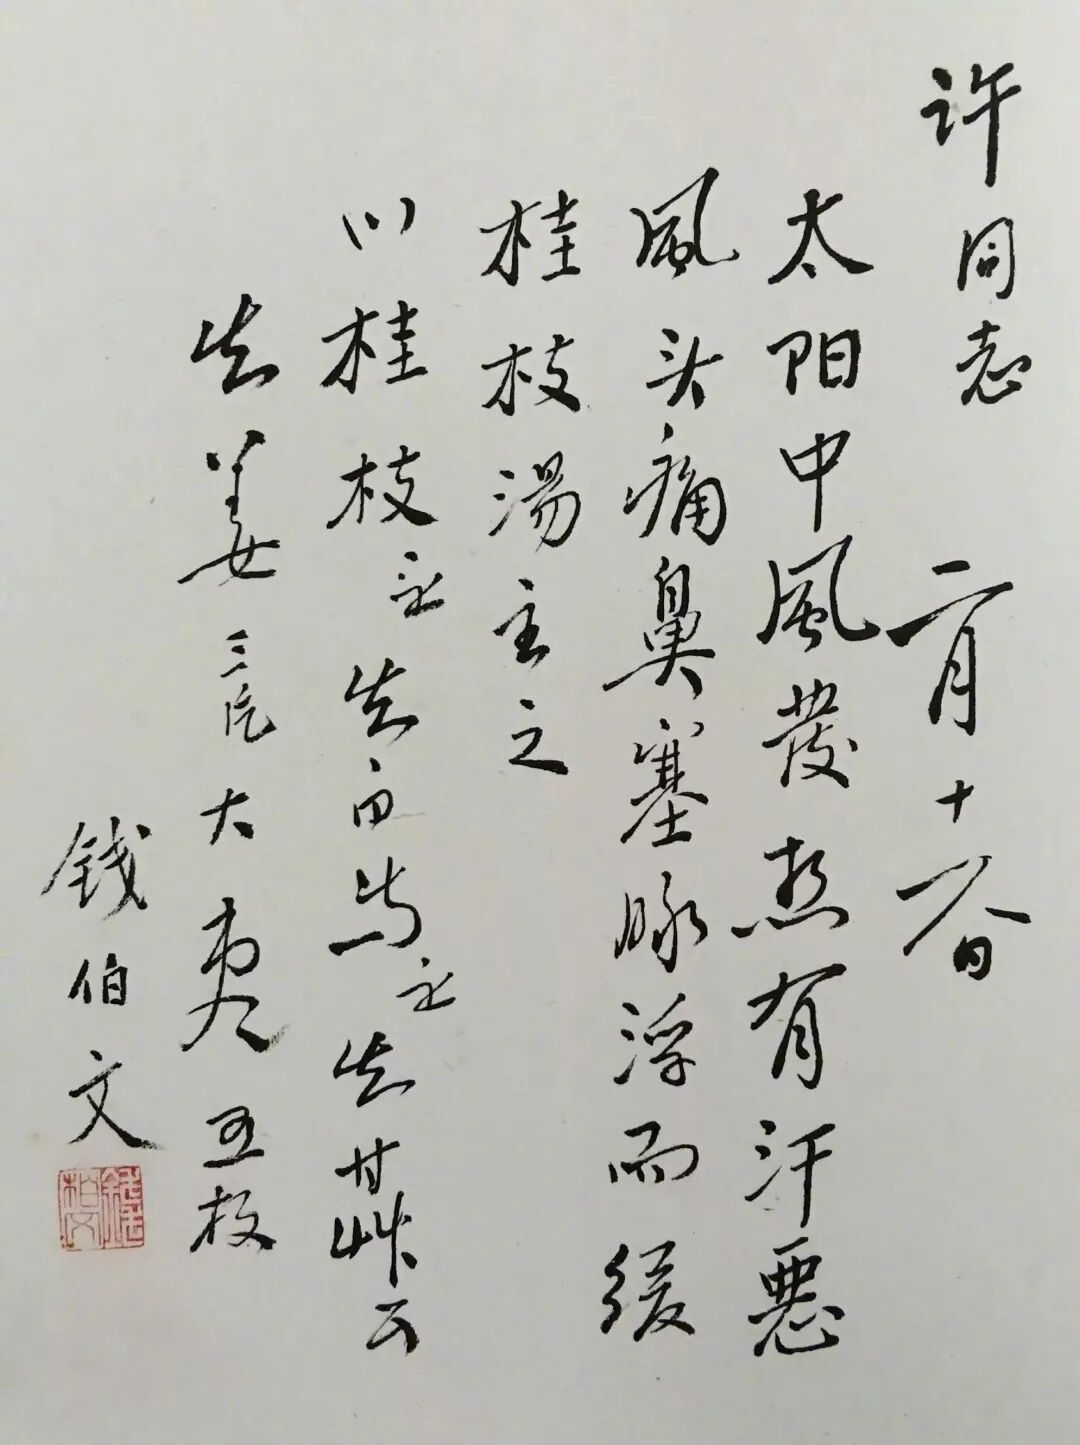 许同志 二月十六日
太阳中風發热有汗惡
風头痛鼻塞脉浮而缓
桂枝湯主之
川桂枝 生白芍 生甘艸
生姜三片大枣五枚
钱伯文